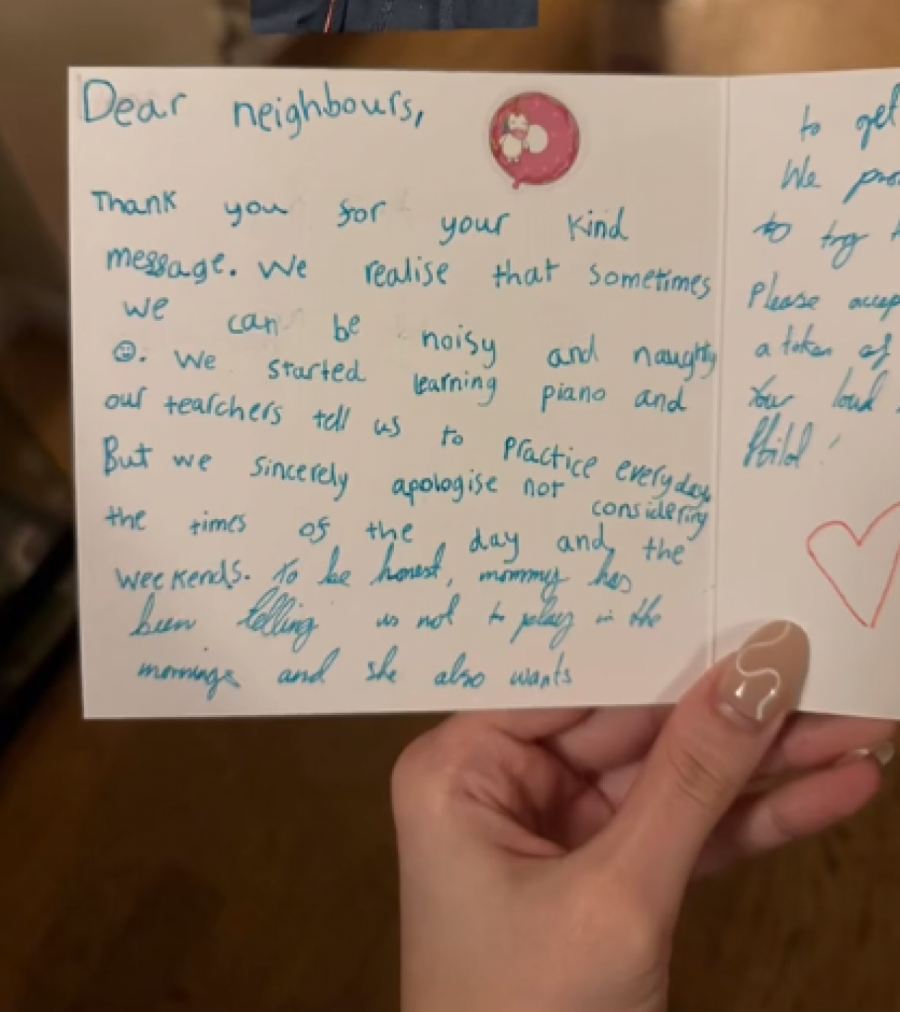 Dear neighbours,
Thank you for your kind
message. We realise that sometimes
we can be noisy and naughty
☺. We started learning piano and
our tearchers tell us to practice everyday
But we sincerely apologise not considering
the times of the day and the
weekends. To be honest, mommy has
been telling us not to play in the
mornings and she also wants
to get
We
to try
Please
a token of
loud